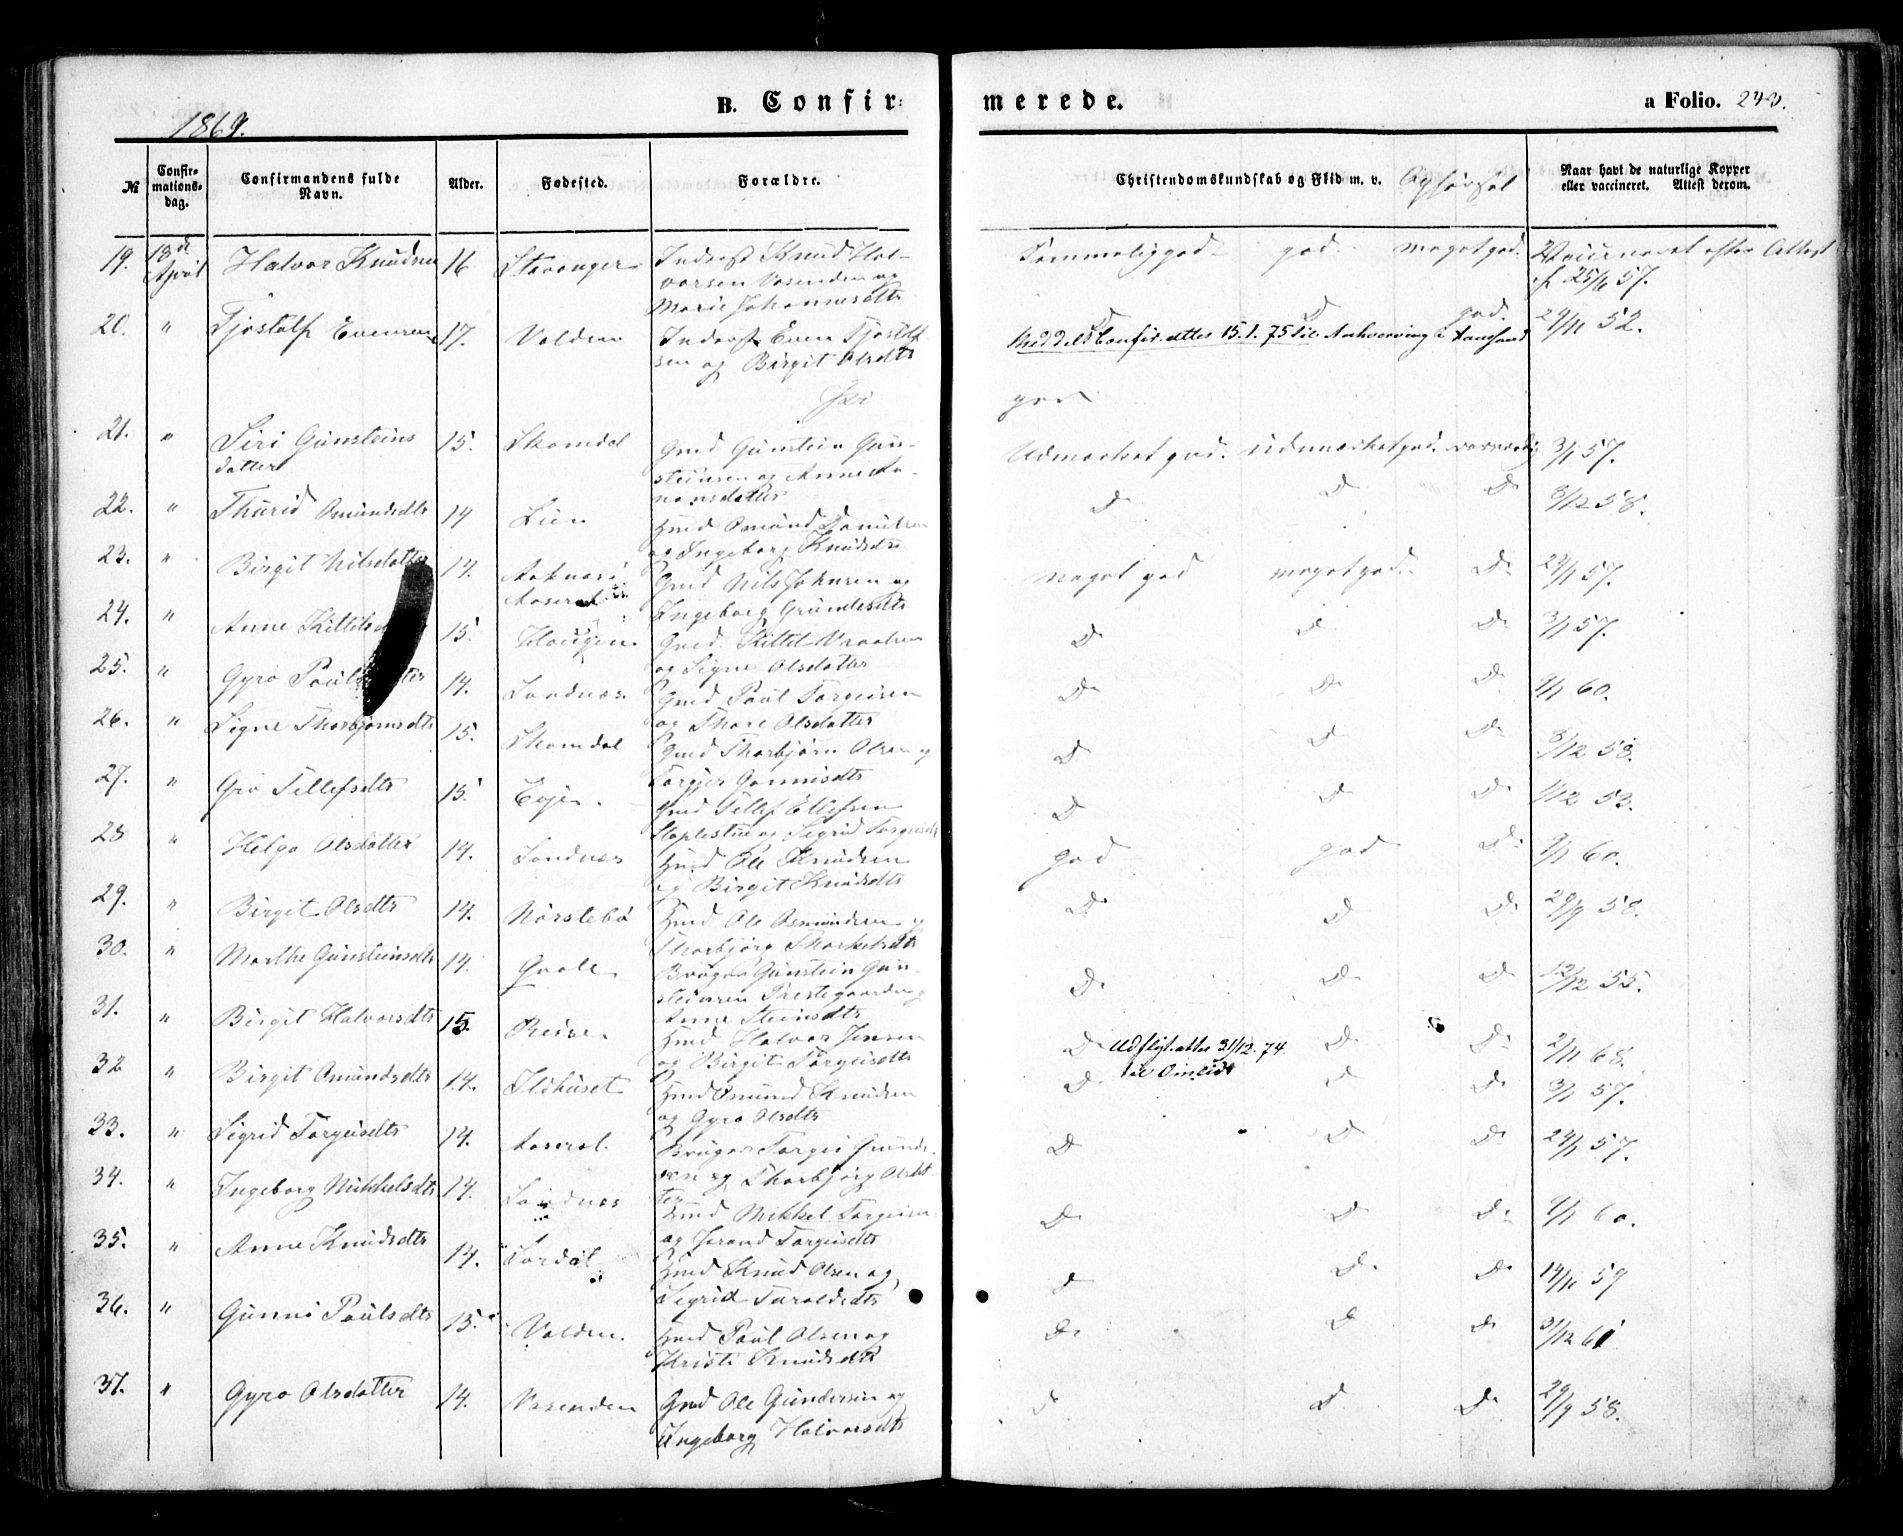 B. Confir-
merede.
a Folio. 243.
1869.
№
Confir-
mations-
dag.
Confirmandens fulde
Navn.
Alder.
Fødested.
Forældre.
Christendomskundskab og Flid m. v.
Opførsel
Naar havt de naturlige Kopper
eller vaccineret. Attest derom.
19. 18de April Halvor Knudsen 16 Stavanger
Knud Hal-
vorsen Vasenden og
Marie Johannesdtr
Temmelig god god. meget god. Vaccineret efter Attest
af 25/6 57.
20. " Tjostolf Evensen 17. Valden
Even Tjostolf-
sen og Birgit Olsdtr
D D god. 29/11 52.
Meddelt Confir.attes 15.1.75 til
Jei
god
21. " Siri Gunsteins
datter 15. Skomdal
Gmd Gunstein Gun-
steinsen og Anne Aa-
nonsdatter
Udmærket god. udmærket god. 3/1 57.
22. " Thurid Omundsdtr 14 Lien
Hmd Omund Danielsen
og Ingeborg Knudsdtr
D D D 8/12 58.
23. " Birgit Nilsdatter 14.
Aaseral
Gmd Nils Johnsen og
Ingeborg Grundesdtr
Meget god meget god. D. 29/1 57.
24. " Anne Kittils 15. Haugen
Gmd. Kittil Vraalsen
og Signe Olsdatter
D D D 3/1 57.
25. " Gyro Pouls 14. Sandnæs
Gmd Poul Torgeirsen
og Thore Olsdatter
D D D 9/1 60.
26. " Signe Thorbjørnsdtr 15. Skomdal
Gmd Thorbjørn Olsen og
D D D 8/12 58.
27. " Gro Tellefsdtr 15 Evje.
Gmd Tellef Ellefsen
og Sigrid Torgeirsdtr
D D D 1/12 53.
28 " Helga Olsdatter 14. Sandnæs
Hmd Ole Knudsen
og Birgit Knudsdtr
god god D. 9/1 60.
29. " Birgit Olsdtr 14. Nørstebø
Hmd Ole Asmundsen og
Thorbjørg Thorkelsdtr
D D D 29/9 58.
30. " Marthe Gunsteinsdtr 14.
Bruger Gunstein Gun-
steinsen Prestegaarden og
Anne Steinsdtr
D D D 12/12 55.
31. " Birgit Halvorsdtr 15. Reise
Hmd Halvor Jensen
og Birgit Torgeisdtr
D Udflyt.attes 31/12.74
til Omlid D D 2/11 68.
32 " Birgit Omundsdtr 14. Ildhuset
Hmd Omund Knudsen
og Gyro Olsdtr
D D D 3/1 57.
33. " Sigrid Torgeisdtr 14. Aaseral.
Bruger Torgei Gunds-
sen og Thorbjørg Olsdat-
ter
D D D 29/1 57.
34. " Ingeborg Mikkelsdtr 14. Sandnæs
Hmd Mikkel Torgeisen
og Jorand Torgeisdtr
D D D 9/1 60.
35. " Anne Knudsdtr 14.
Hmd Knud Olsen og
Sigrid Taraldsdtr
D D D 14/11 59
36. " Gunni Poulsdtr 15. Valden.
Hmd Poul Olsen og
Kristi Knudsdtr
D D D 31/12 61
37. " Gyro Olsdatter 14. Vasenden
Gmd Ole Gundersen og
Ingeborg Halvorsdtr
D D D 29/9 58.